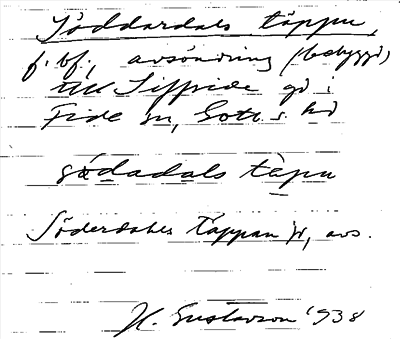 Söddardals täppu,
f. bf., avsöndring (bebyggd)
till Siffride gd i
Fide sn, Gotl. s. hd
sødadals täpu
Söderdahls Täppan jr, avs.
H. Gustavson 1938